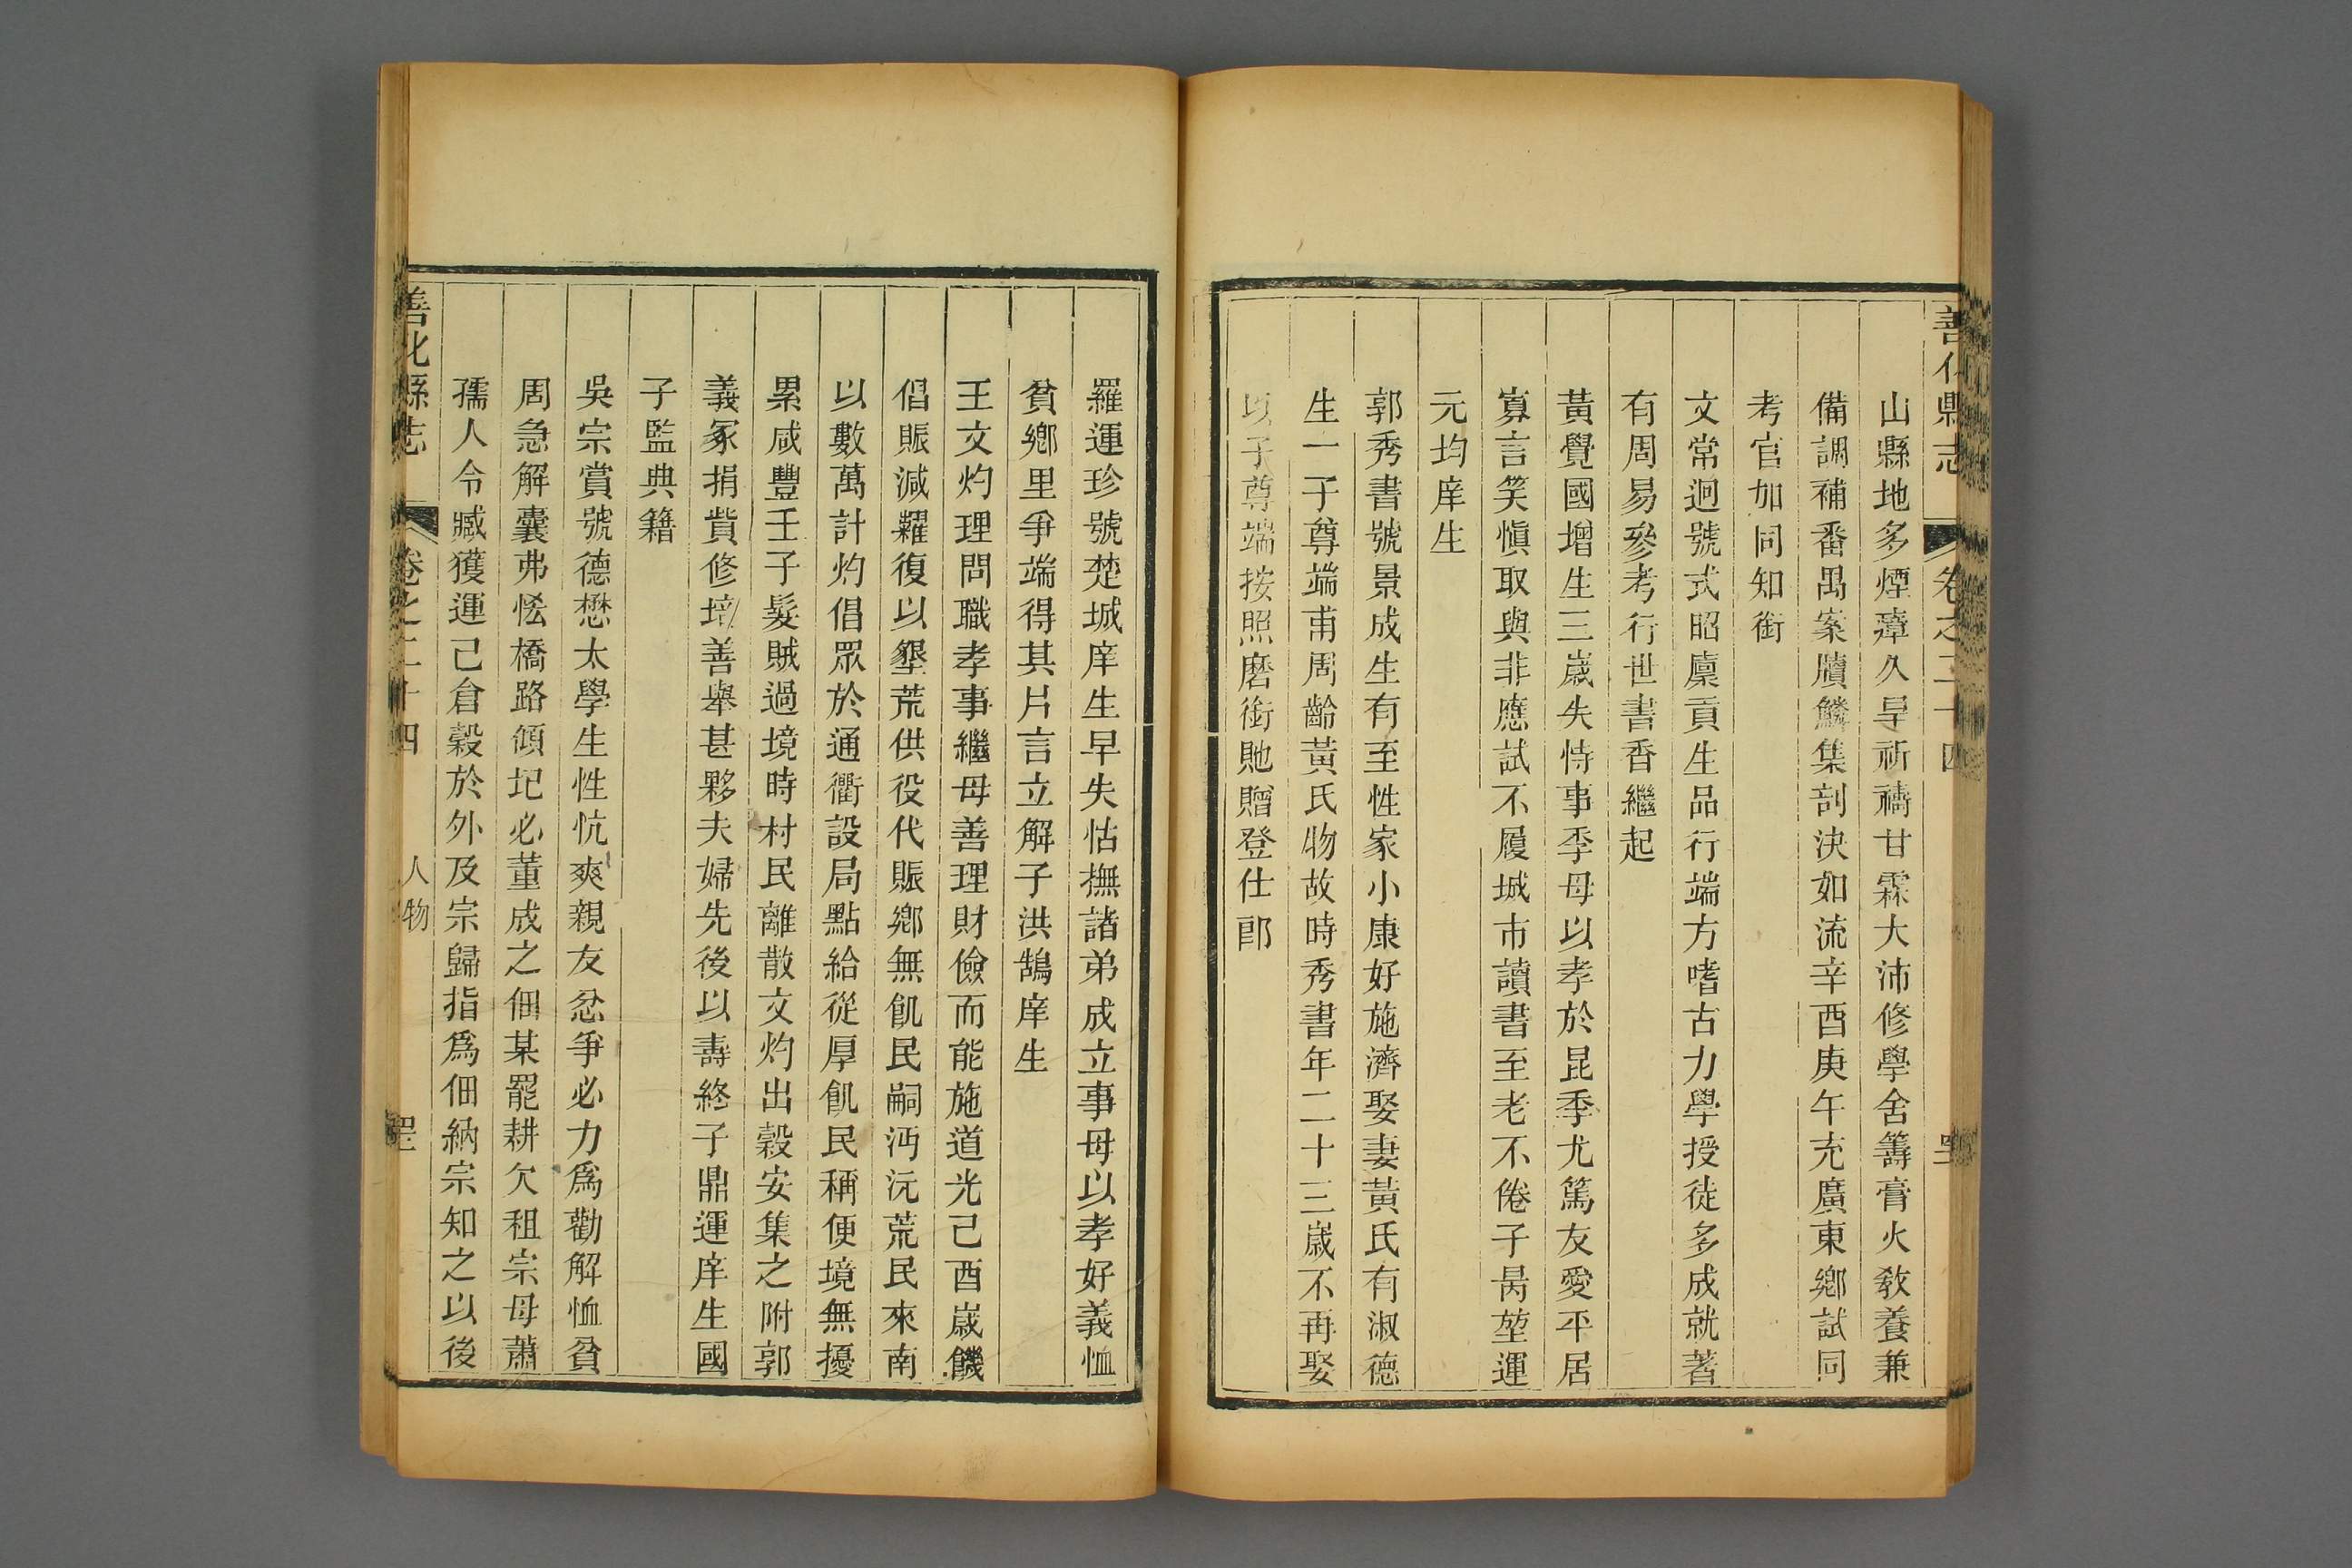 善化縣志 卷之二十四
山縣地多煙瘴久旱祈禱甘霖大沛修學舍籌膏火敎養兼
備調補番禺案牘鱗集剖決如流辛酉庚午充廣東鄉試同
考官加同知銜
文常迥號式昭廩貢生品行端方嗜古力學授徒多成就著
有周易參考行世書香繼起
黃覺國增生三歲失恃事季母以孝於昆季尤篤友愛平居
寡言笑愼取與非應試不履城市讀書至老不倦子昺堃運
元均庠生
郭秀書號景成生有至性家小康好施濟娶妻黃氏有淑德
生一子尊端甫周齡黃氏物故時秀書年二十三歲不再娶
以子尊端按照磨銜貤贈登仕郎
羅運珍號楚城庠生早失怙撫諸弟成立事母以孝好義恤
貧鄉里爭端得其片言立解子洪鵠庠生
王文灼理問職孝事繼母善理財儉而能施道光己酉歲饑
倡賑減糶復以墾荒供役代賑鄉無飢民嗣沔沅荒民來南
以數萬計灼倡眾於通衢設局點給從厚飢民稱便境無擾
累咸豐壬子髮賊過境時村民離散文灼出穀安集之附郭
義冢捐貲修培善舉甚夥夫婦先後以壽終子鼎運庠生國
子監典籍
吳宗賞號德懋太學生性伉爽親友忿爭必力爲勸解恤貧
周急解囊弗恡橋路傾圮必董成之佃某罷耕欠租宗母蕭
孺人令臧獲運己倉穀於外及宗歸指爲佃納宗知之以後
善化縣志 卷之二十四 人物